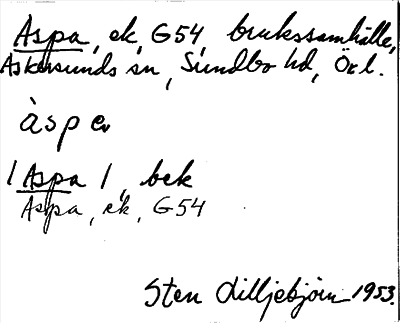 Aspa, ek, G54, brukssamhälle,
Askersunds sn, Sundbo hd, Ör l.
àspa
/ Aspa /, bek
Aspa, ek, G54
Sten Lilljebjörn 1953.